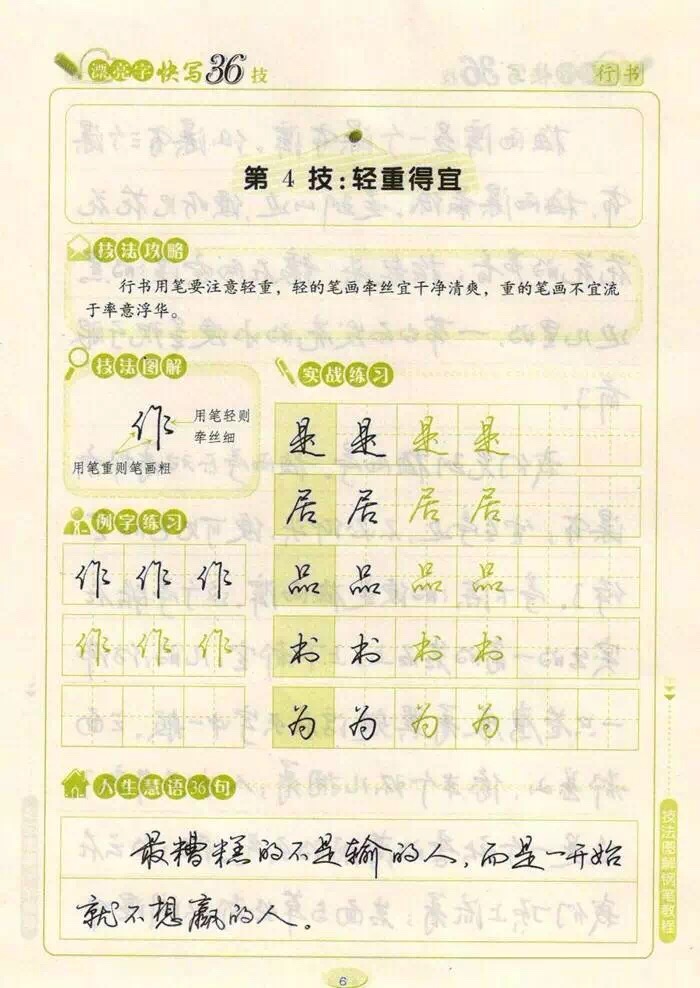 漂亮字快写36技
行书
第 4 技:轻重得宜
技法攻略
行书用笔要注意轻重，轻的笔画牵丝宜干净清爽，重的笔画不宜流
于率意浮华。
技法图解
作
用笔轻则
牵丝细
用笔重则笔画粗
例字练习
作 作 作
作 作 作
实战练习
是 是 是 是
居 居 居 居
品 品 品 品
书 书 书 书
为 为 为 为
人生慧语36句
最糟糕的不是输的人，而是一开始
就不想赢的人。
技法图解钢笔教程
6